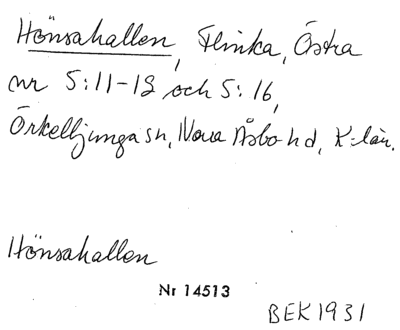 Hönsahallen, Flinka, Östra
nr 5:11-12 och 5:16,
Örkelljunga sn, Norra Åsbo hd, K-län.
Hönsahallen
Nr 14513
BEK 1931